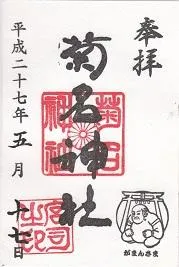 奉拝
菊名神社
菊名神社
平成二十七年五月十七日
がまんさま